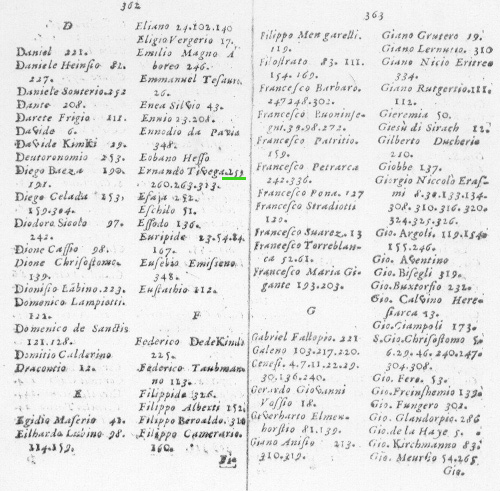 362
D
Daniel 221.
Daniele Heinsio 82.
227.
Daniele Souterio.252
Dante 208.
Darete Frigio 111.
Davide 6.
Davide Kimki 29.
Deuteronomio 253.
Diego Baeza 190.
191.
Diego Celada 153.
159.304.
Diodoro Sicolo 97.
242.
Dione Cassio 98.
Dione Chrisostomo
139.
Dionisio Labino.223.
Domenico Lampiotti
112.
Domenico de Sanctis
121.128.
Domitio Calderino
Draconcio 12.
E
Egidio Maserio 41.
Eilhardo Lubino 98.
114.159.
Eliano 24.102.140
Eligio Vergerio 17.
Emilio Magno A
boreo 246.
Emmanuel Tesauro.
26.
Enea Silvio 43.
Ennio 23.208.
Ennodio da Pavia
348.
Eobano Hesso
Ernando Tivega.259
260.263.313.
Esaja 252.
Eschilo 51.
Essodo 136.
Euripide 13.54.84.
167.
Eusebio Emisseno
348.
Eustathio 112.
F
Federico DedeKindo
225.
Federico Taubman-
no 123.
Filippide 326.
Filippo Alberti 152.
Filippo Beroaldo. 310
Filippo Camerario.
160.
Fi-
363
Filippo Mengarelli.
119.
Filostrato 83. 111.
154. 169.
Francesco Barbaro.
247 248.302.
Francesco Buoninse-
gni.39.98.272.
Francesco Patritio.
159.
Francesco Petrarca
242.336.
Francesco Pona. 127
Francesco Stradiotti
129.
Francesco Suarez.13
Francesco Torreblan-
ca 52.61.
Francesco Maria Gi-
gante 193.203.
G
Gabriel Fallopio. 221
Galeno 103.217.220.
Genesi. 4.7.11.22.29.
30.136.240.
Gerardo Giovanni
Vossio 18.
Geverharto Elmen-
horstio 81.139.
Giano Anisio 213.
310.319.
Giano Grutero 19.
Giano Lernutio. 310
Giano Nicio Eritreo
334.
Giano Rutgersio.111.
112.
Gieremia 50.
Giesù di Sirach 12.
Gilberto Ducherio
210.
Giobbe 137.
Giorgio Niccolò Eras-
mi 8.30.133.134.
308.310.316.320.
324.325.326.
Gio. Argoli. 119.154.
155.246.
Gio. Aventino
Gio. Bisegli 319.
Gio.Buxtorfio 232.
Gio. Calvino Here-
siarca 23.
Gio.Ciampoli 173.
S.Gio.Chrisostomo 5.
6.29.46.240.247.
304.308.
Gio. Fero. 53.
Gio.Freinshemio 139.
Gio. Fungero 302.
Gio. Glandorpio. 286
Gio.de la Haye 5.
Gio. Kirchmanno 83.
Gio. Meurso 54.265.
Gio.